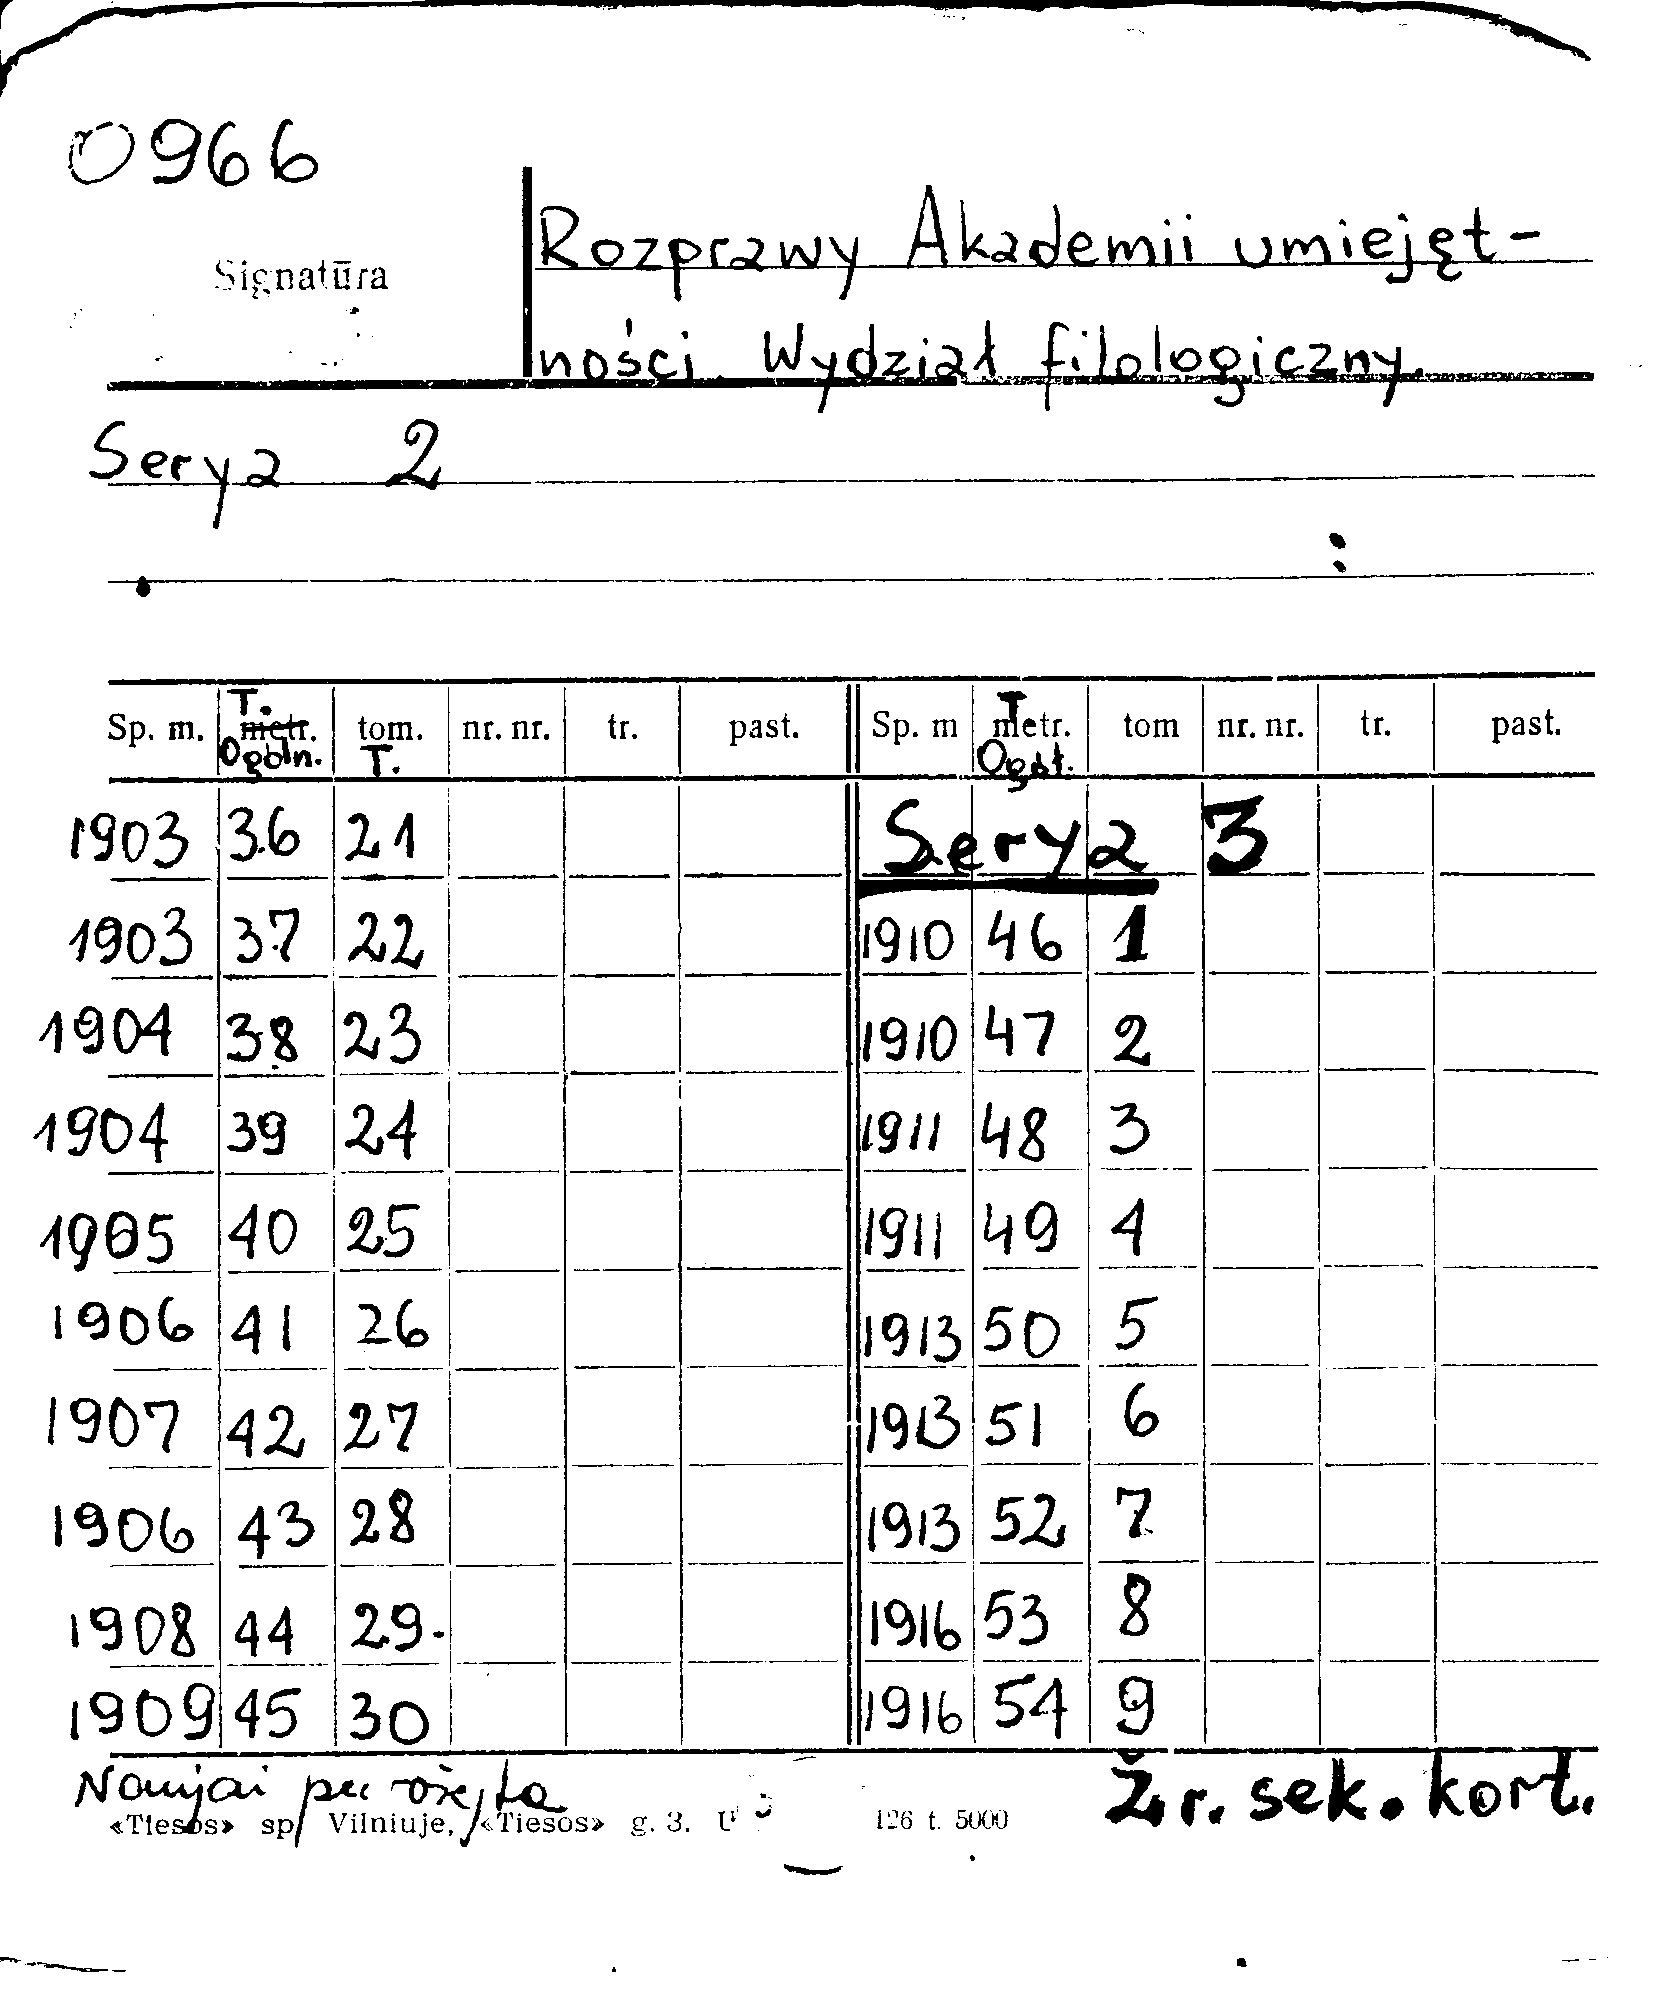 0966
Signatūra
Rozprawy Akademii umiejęt-
ności. Wydział filologiczny.
Serya 2
Sp. m. T. metr. Ogóln. tom. T. nr. nr. tr. past. Sp. m T metr. Ogół. tom nr. nr. tr. past.
1903 36 21 Serya 3
1903 37 22 1910 46 1
1904 38 23 1910 47 2
1904 39 24 1911 48 3
1905 40 25 1911 49 4
1906 41 26 1913 50 5
1907 42 27 1913 51 6
1906 43 28 1913 52 7
1908 44 29. 1916 53 8
1909 45 30 1916 54 9
Žr. sek. kort.
«Tiesos» sp Vilniuje, «Tiesos» g. 3. 126 t. 5000